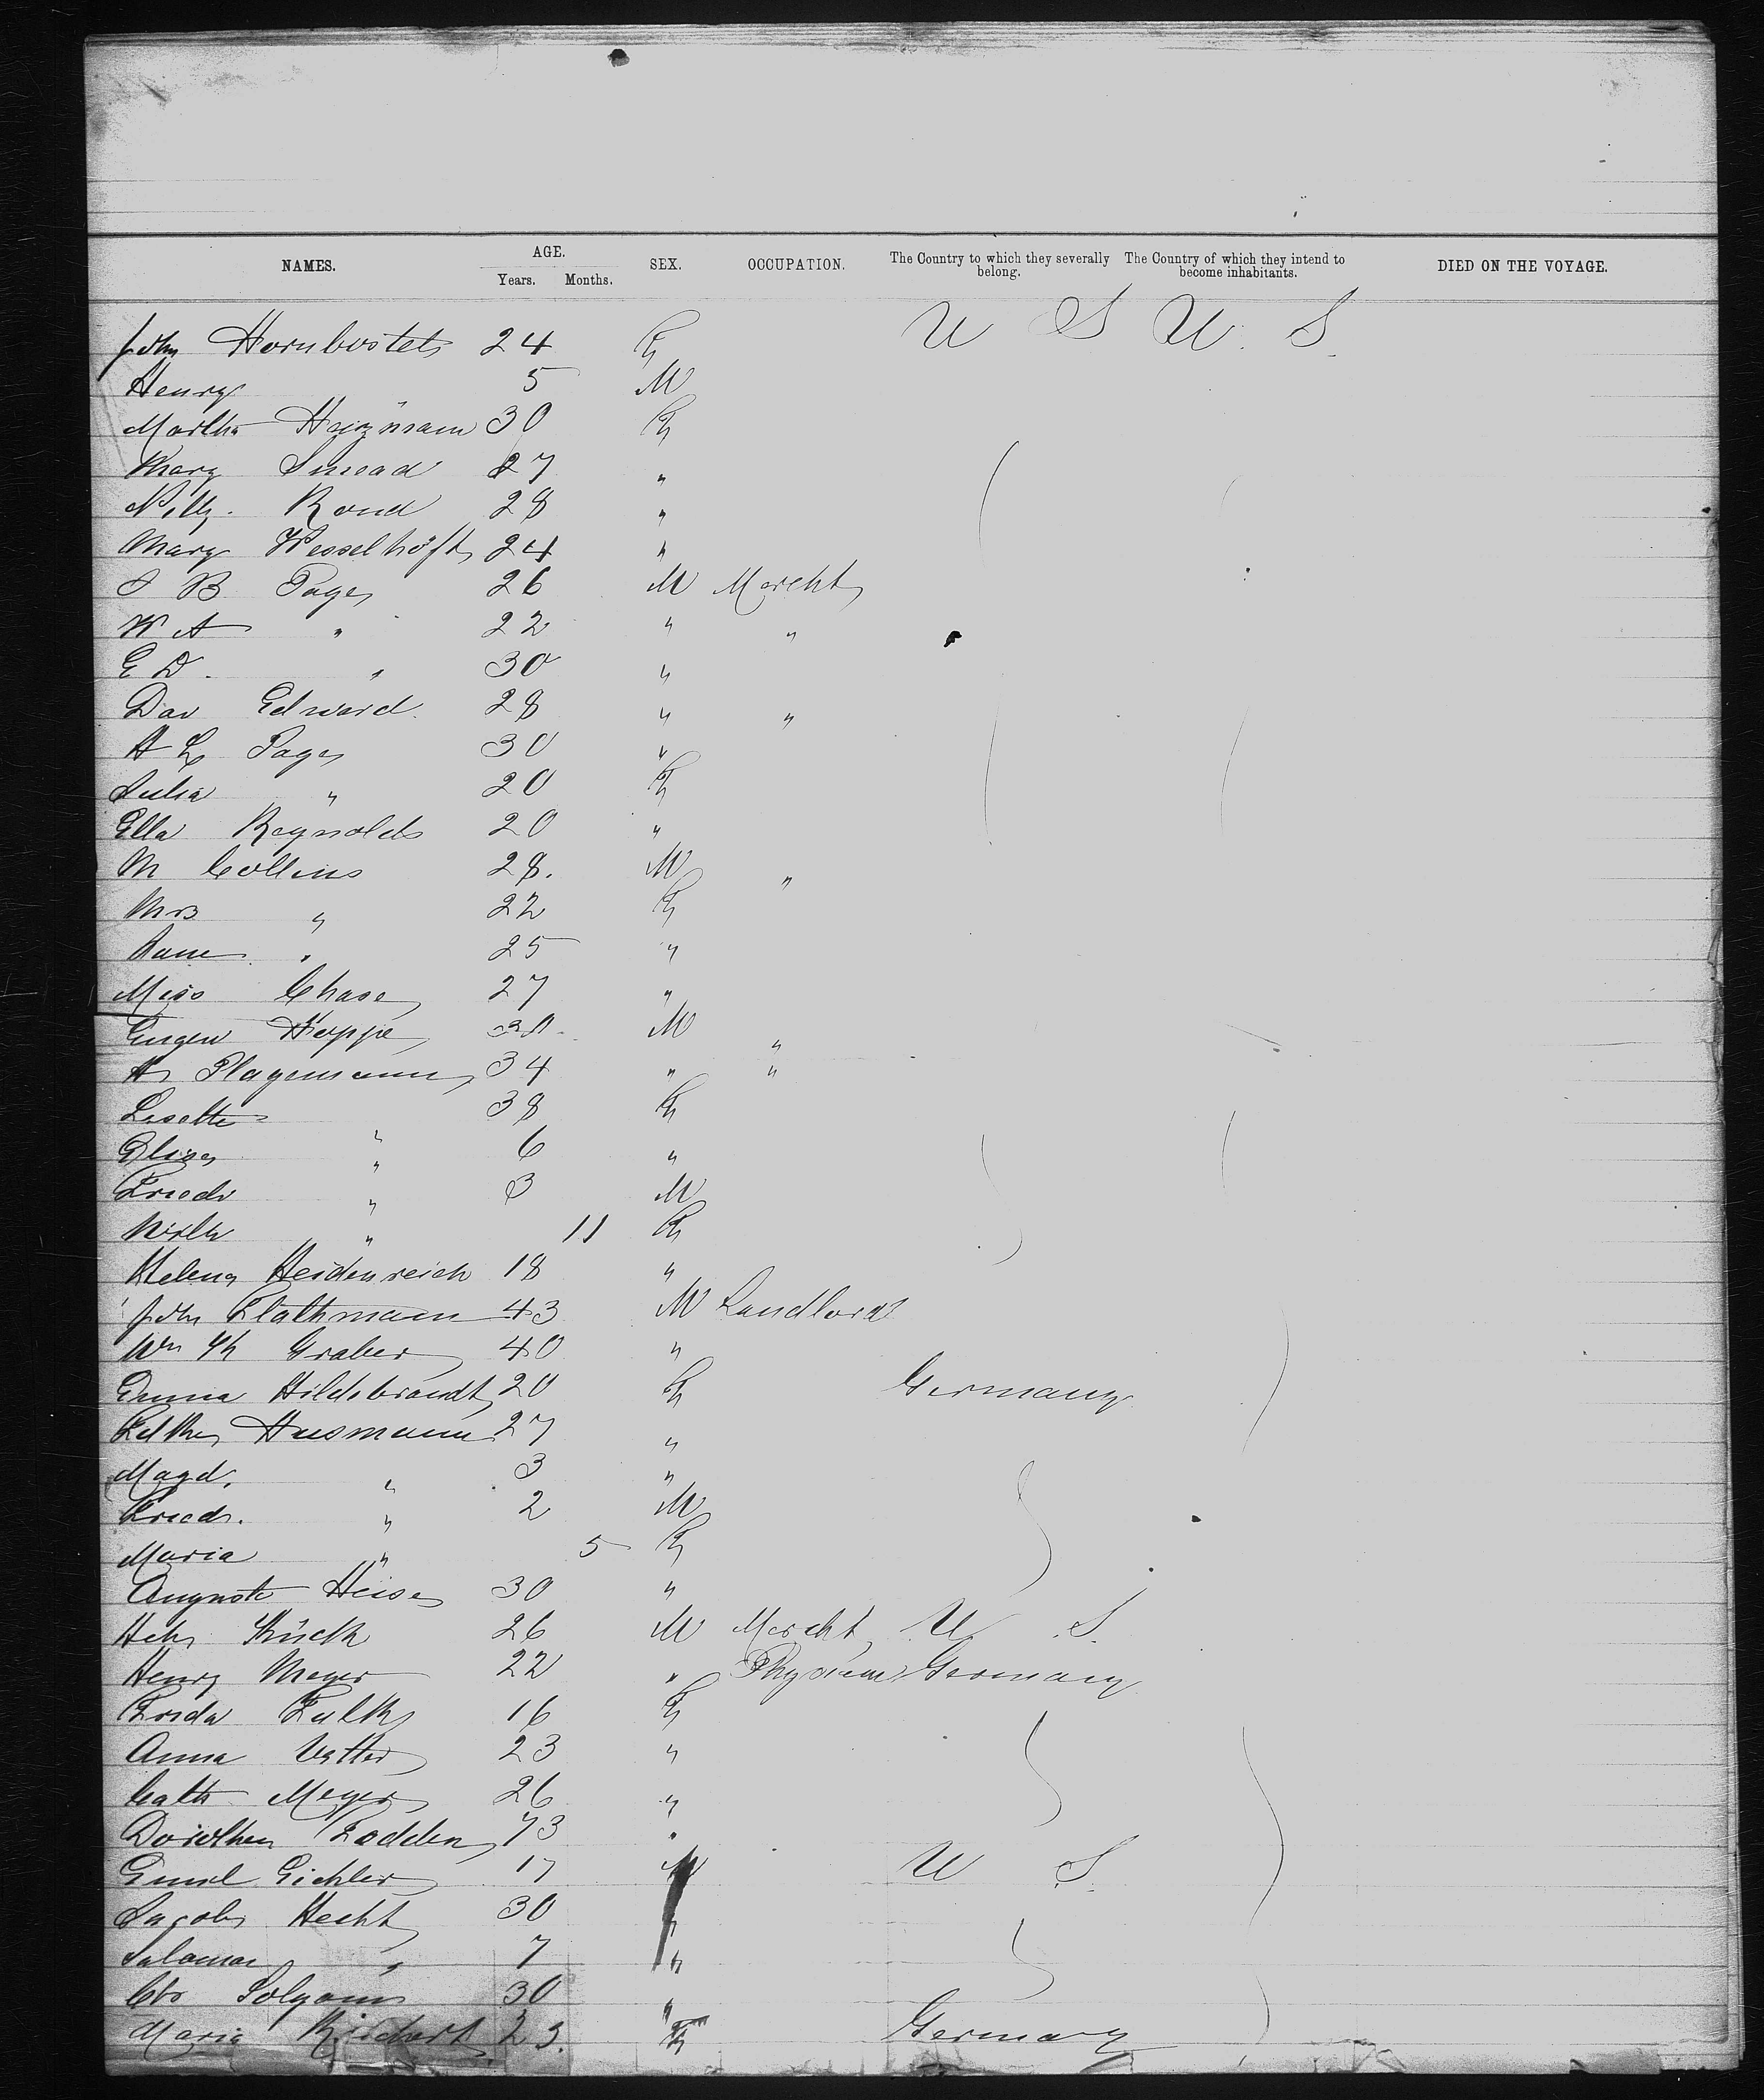 NAMES. AGE. SEX. OCCUPATION. The Country to which they severally belong. The Country of which they intend to become inhabitants. DIED ON THE VOYAGE.
Years. Months.
John Hornbostel 24 F U S U. S.
Henry 5 M
Martha 30 F
Mary Smead 27 "
Rond 28 "
Mary Wesselhöft 24 "
B Page 26 M Mercht
W A " 22 " "
E D. " 30 "
Dav Edward. 28 " "
A L Page 30 "
Julia " 20 F
Ella Reynolds 20 "
M Collins 28. M "
Mrs " 22 F
" 25 "
Miss Chase 27 "
Eugen Hoppe M "
H Plagemann 34 " "
Lisette " 38 F
Elise " 6 "
Friedr " 3 M
" 11 F
Helena Heidenreich 18 "
John Flathmann 43 M Landlord
Wm Graber 40 "
Emma Hildebrandt 20 F Germany
Husmann 27 "
Magd. " 3 "
Friedr. " 2 M
Maria " 5 F
Auguste Heise 30 "
Hch Kück 26 M Mercht U S.
Henry Meyer 22 " Germany
Frida Falk 16 F
Anna Vetter 23 "
Cath Meyer 26 "
Dorothea 73 "
Eichler 17 M U S.
Jacob Hecht 30 "
Salomon " 7 "
30 "
Maria 23. F Germany